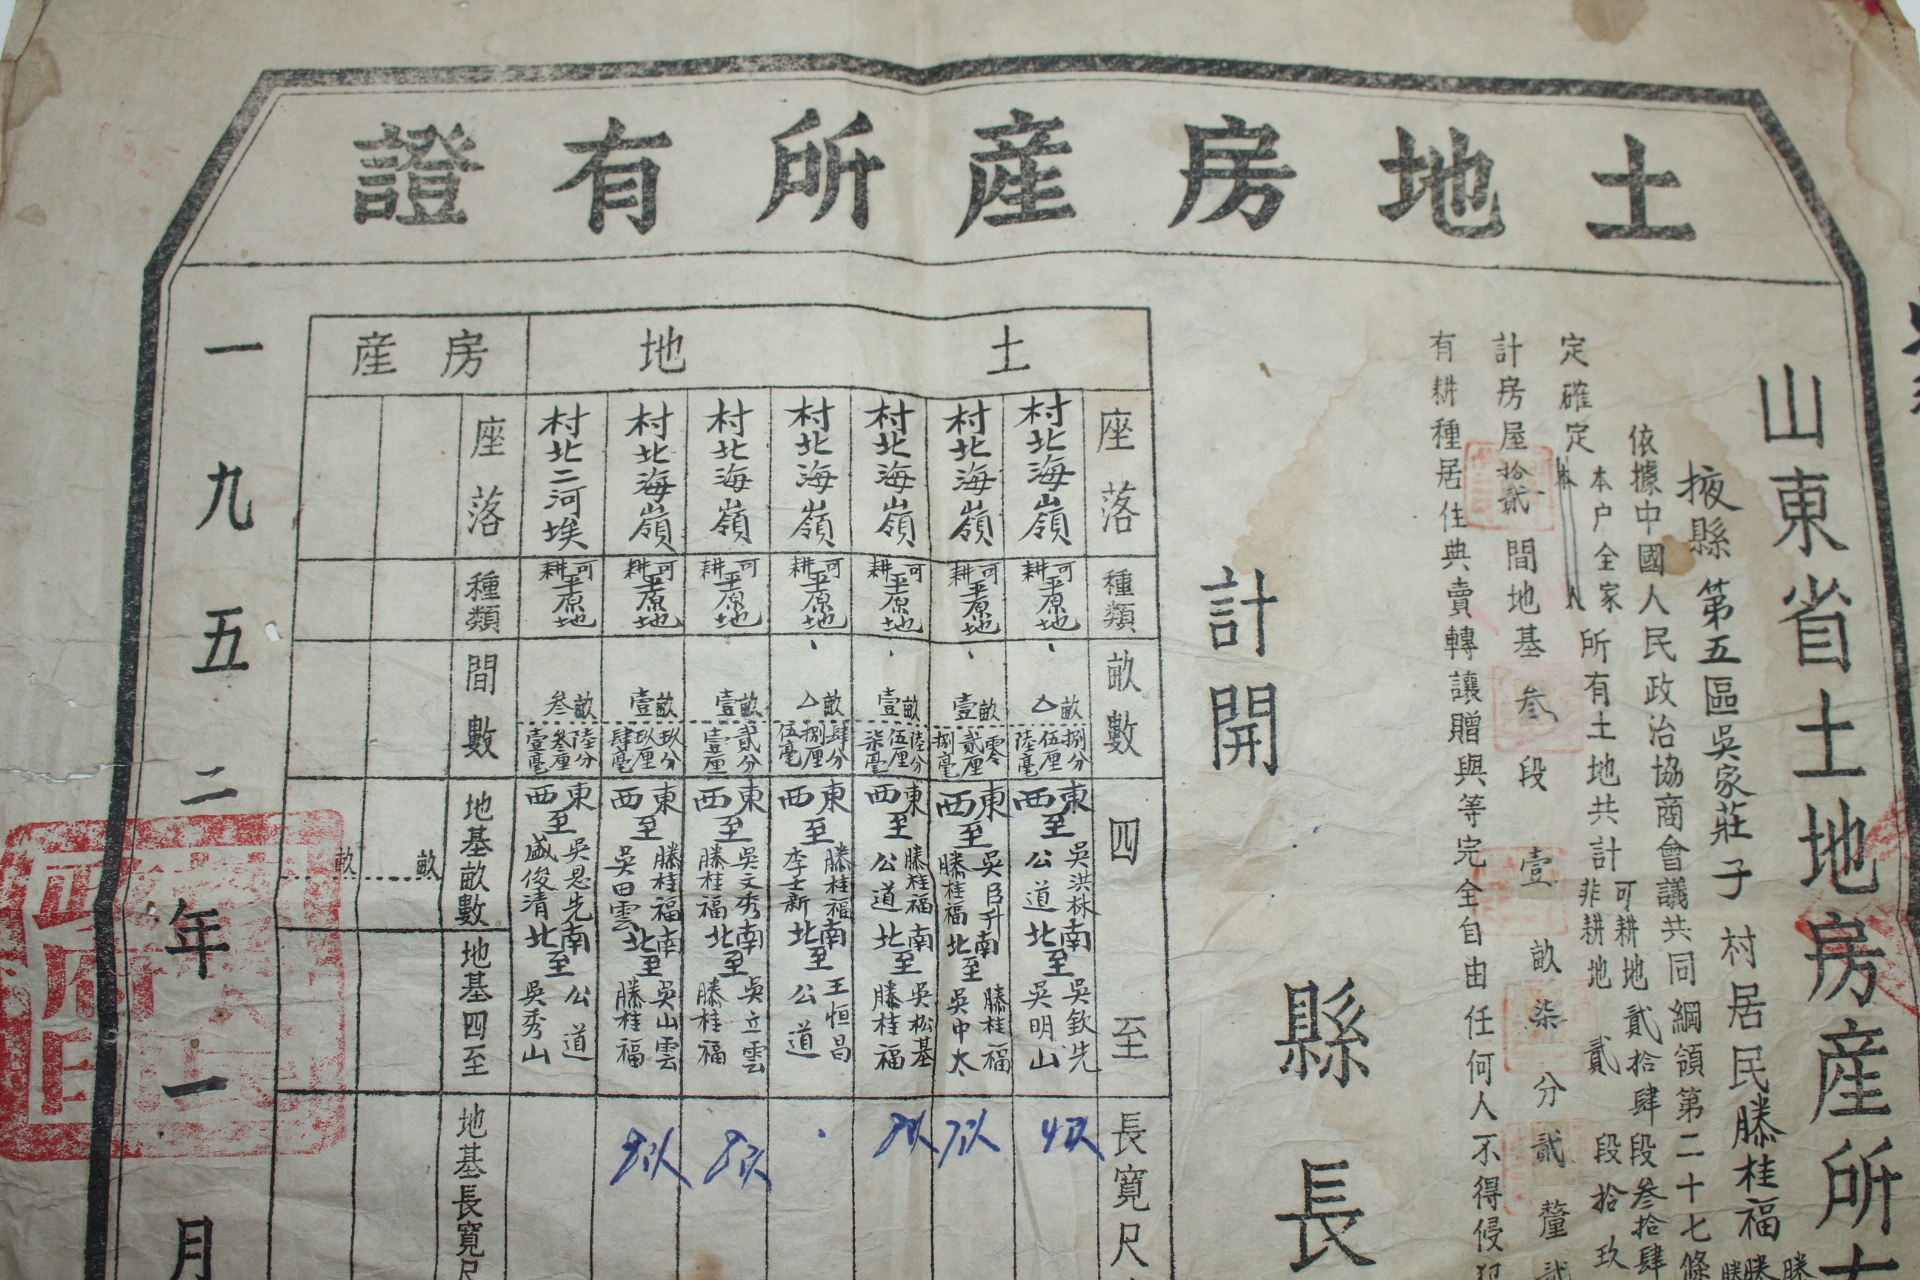 土地房産所有證
山東省土地房産所
掖縣第五區吳家莊子村居民滕桂福
依據中國人民政治協商會議共同綱領第二十七條
定確定本户全家所有土地共計可耕地貳拾肆段叁拾肆
非耕地貳段拾玖
計房屋拾貳間地基叁段壹畝柒分貳釐貳
有耕種居住典賣轉讓贈與等完全自由任何人不得侵犯
縣長
計開
土地
房産
座落
種類
畝數
四至
長寬尺
村北海嶺
可耕平原地
△畝捌分伍厘陸毫
東至吳洪林
西至公道
南至吳欽先
北至吳明山
4以
村北海嶺
可耕平原地
壹畝零貳厘捌毫
東至吳臣升
西至滕桂福
南至滕桂福
北至吳中太
7以
村北海嶺
可耕平原地
壹畝陸分伍厘柒毫
東至滕桂福
西至公道
南至吳松基
北至滕桂福
村北海嶺
可耕平原地
△畝肆分捌厘伍毫
東至滕桂福
西至李士新
南至王恒昌
北至公道
村北海嶺
可耕平原地
壹畝貳分壹厘
東至吳文秀
西至滕桂福
南至吳立雲
北至滕桂福
8以
村北海嶺
可耕平原地
壹畝玖分玖厘肆毫
東至滕桂福
西至吳田雲
南至吳山雲
北至滕桂福
村北二河埃
可耕平原地
叁畝陸分叁厘壹毫
東至吳恩先
西至盛俊清
南至公道
北至吳秀山
座落
種類
間數
地基畝數
地基四至
地基長寬尺
畝
畝
一九五二年一月